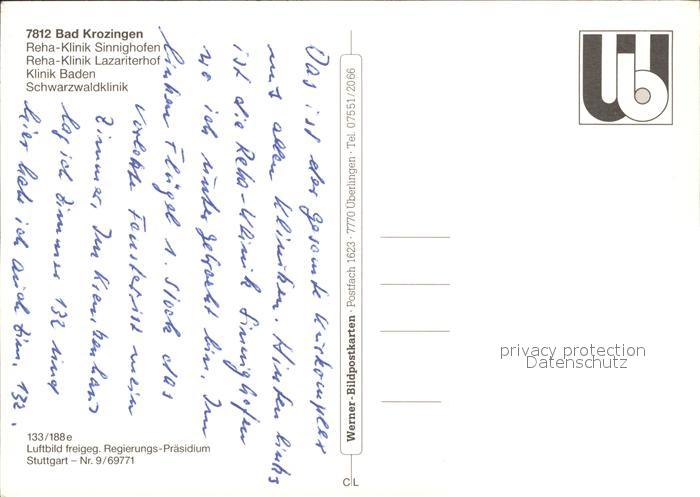 7812 Bad Krozingen
Reha-Klinik Sinnighofen
Reha-Klinik Lazariterhof
Klinik Baden
Schwarzwaldklinik
Das ist der gesamte Kurkomplex
mit allen Kliniken. Hinten links
ist die Reha-Klinik Sinnighofen
wo ich untergebracht bin. Im
linken Flügel 1. Stock das
vorletzte Fenster ist mein
Zimmer. Im Krankenhaus
lag ich Zimmer 132 und
hier habe ich auch Zim. 132.
133/188e
Luftbild freigeg. Regierungs-Präsidium
Stuttgart – Nr. 9/69771
Werner-Bildpostkarten · Postfach 1623 · 7770 Überlingen · Tel. 07551/2066
CL
privacy protection
Datenschutz